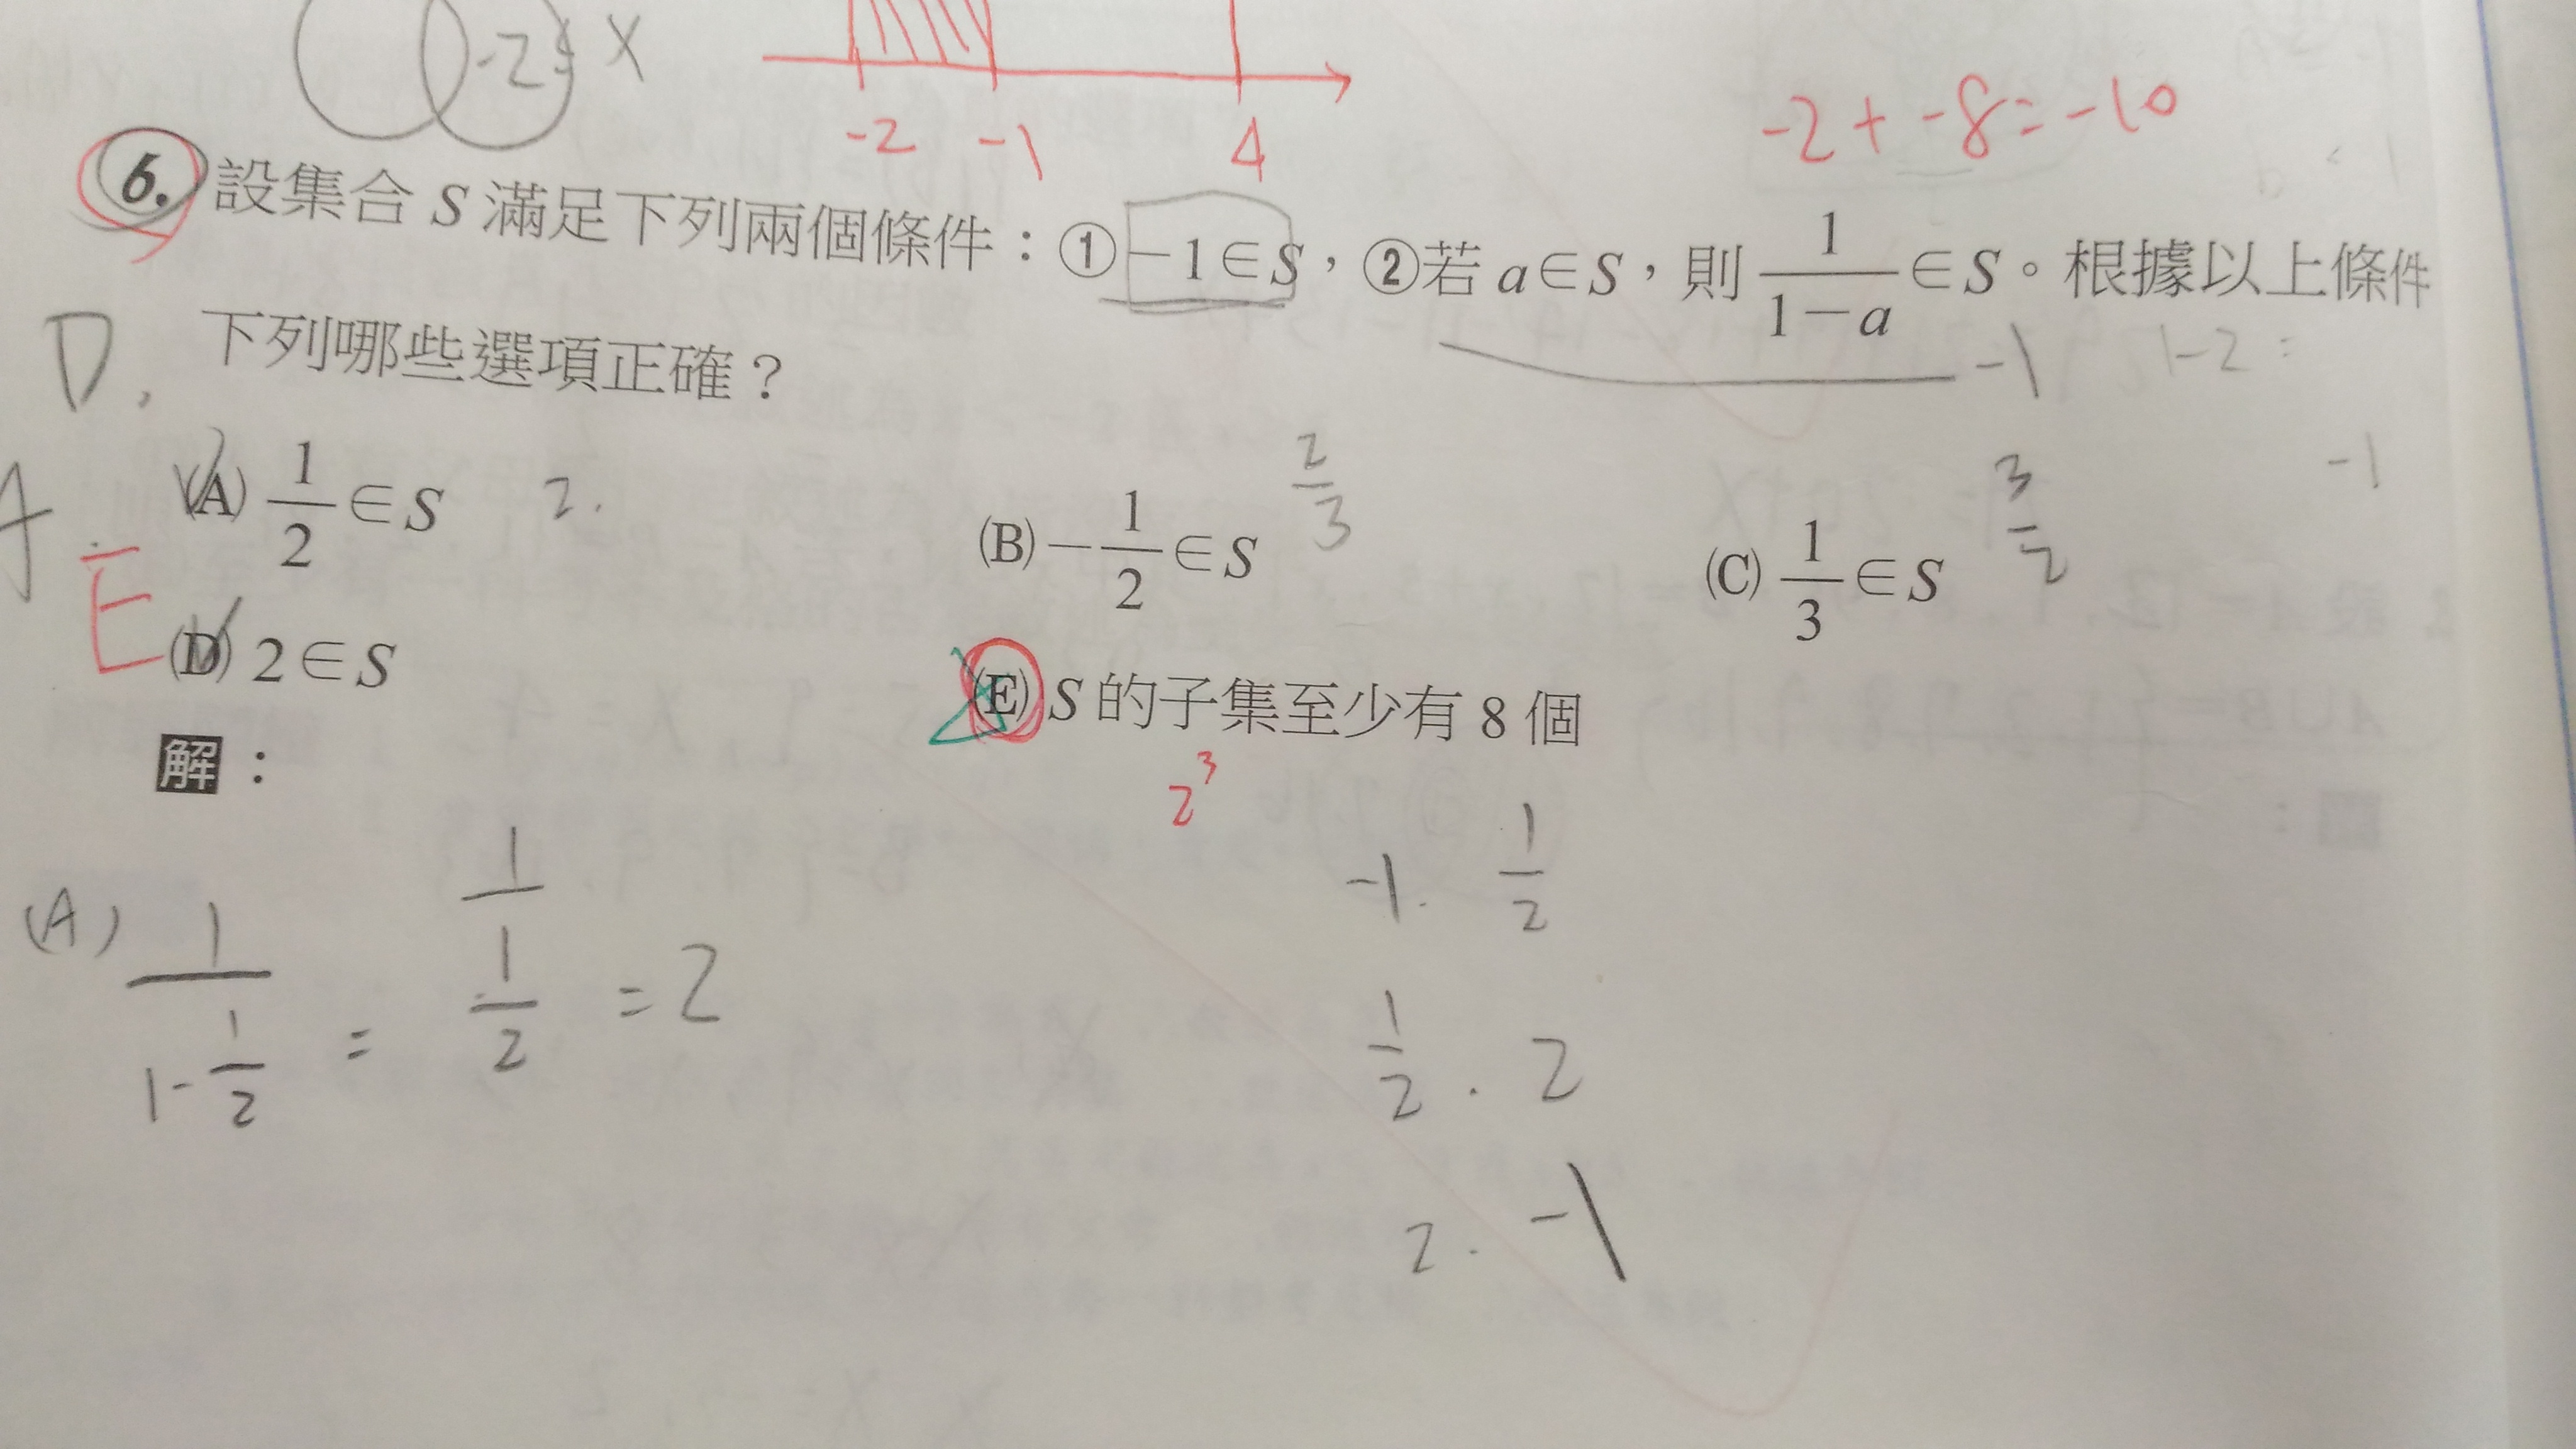 -2 X
-2 -1 4
-2 + -8 = -10
6. 設集合 S 滿足下列兩個條件：① -1∈S，②若 a∈S，則 1/(1-a) ∈S。根據以上條件
D. 下列哪些選項正確？ -1 1-2 =
-1
A (A) 1/2 ∈S 2. (B) -1/2 ∈S 2/3 (C) 1/3 ∈S 3/2
E (D) 2∈S (E) S 的子集至少有 8 個
2³
解：
(A) 1/(1-1/2) = 1/(1/2) = 2
-1. 1/2
1/2 . 2
2. -1